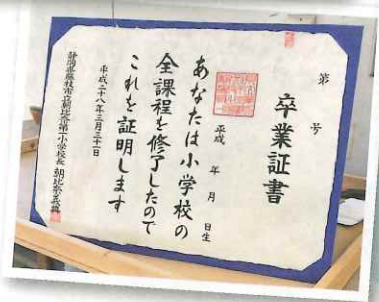 卒業証書
第　号
平成　年　月　日生
あなたは小学校の
全課程を修了したので
これを証明します
平成二十八年三月三十一日
静岡県藤枝市立朝比奈第一小学校長